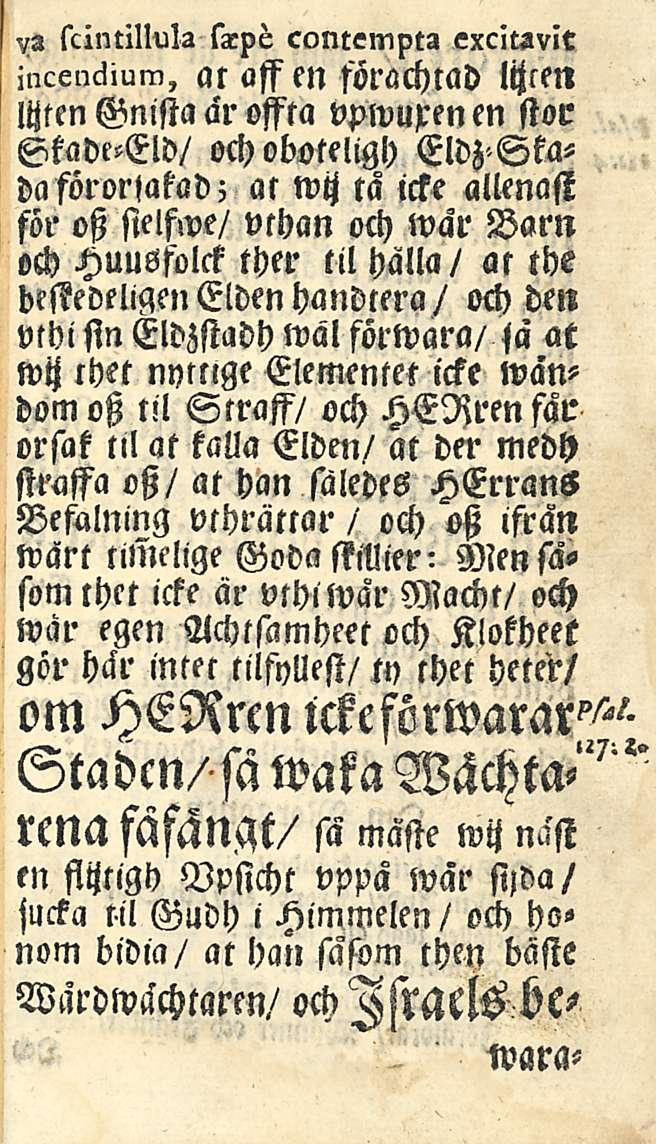 va scintillula sæpè contempta excitavit
incendium, at aff en förachtad lijten
lijten Gnista är offta vpwuxen en stor
Skade-Eld/ och oboteligh Eldz-Ska-
da förorsakad; at wij tå icke allenast
för oß sielfwe/ vthan och wår Barn
och Huusfolck ther til hålla/ at the
beskedeligen Elden handtera/ och den
vthi sin Eldzstadh wäl förwara/ så at
wij thet nyttige Elementet icke wän-
dom oß til Straff/ och HERren får
orsak til at kalla Elden/ at der medh
straffa oß/ at han således HErrans
Befalning vthrättar/ och oß ifrån
wårt tim̃elige Goda skillier: Men så-
som thet icke är vthi wår Macht/ och
wår egen Achtsamheet och Klokheet
gör här intet tilfyllest/ ty thet heter/
om HERren icke förwarar Psal.
Staden/ så waka Wächta- 127: 2.
rena fåfängt/ så måste wij näst
en flijtigh Vpsicht vppå wår sijda/
sucka til Gudh i Himmelen/ och ho-
nom bidia/ at han såsom then bäste
Wårdwächtaren/ och Israels be-
wara-